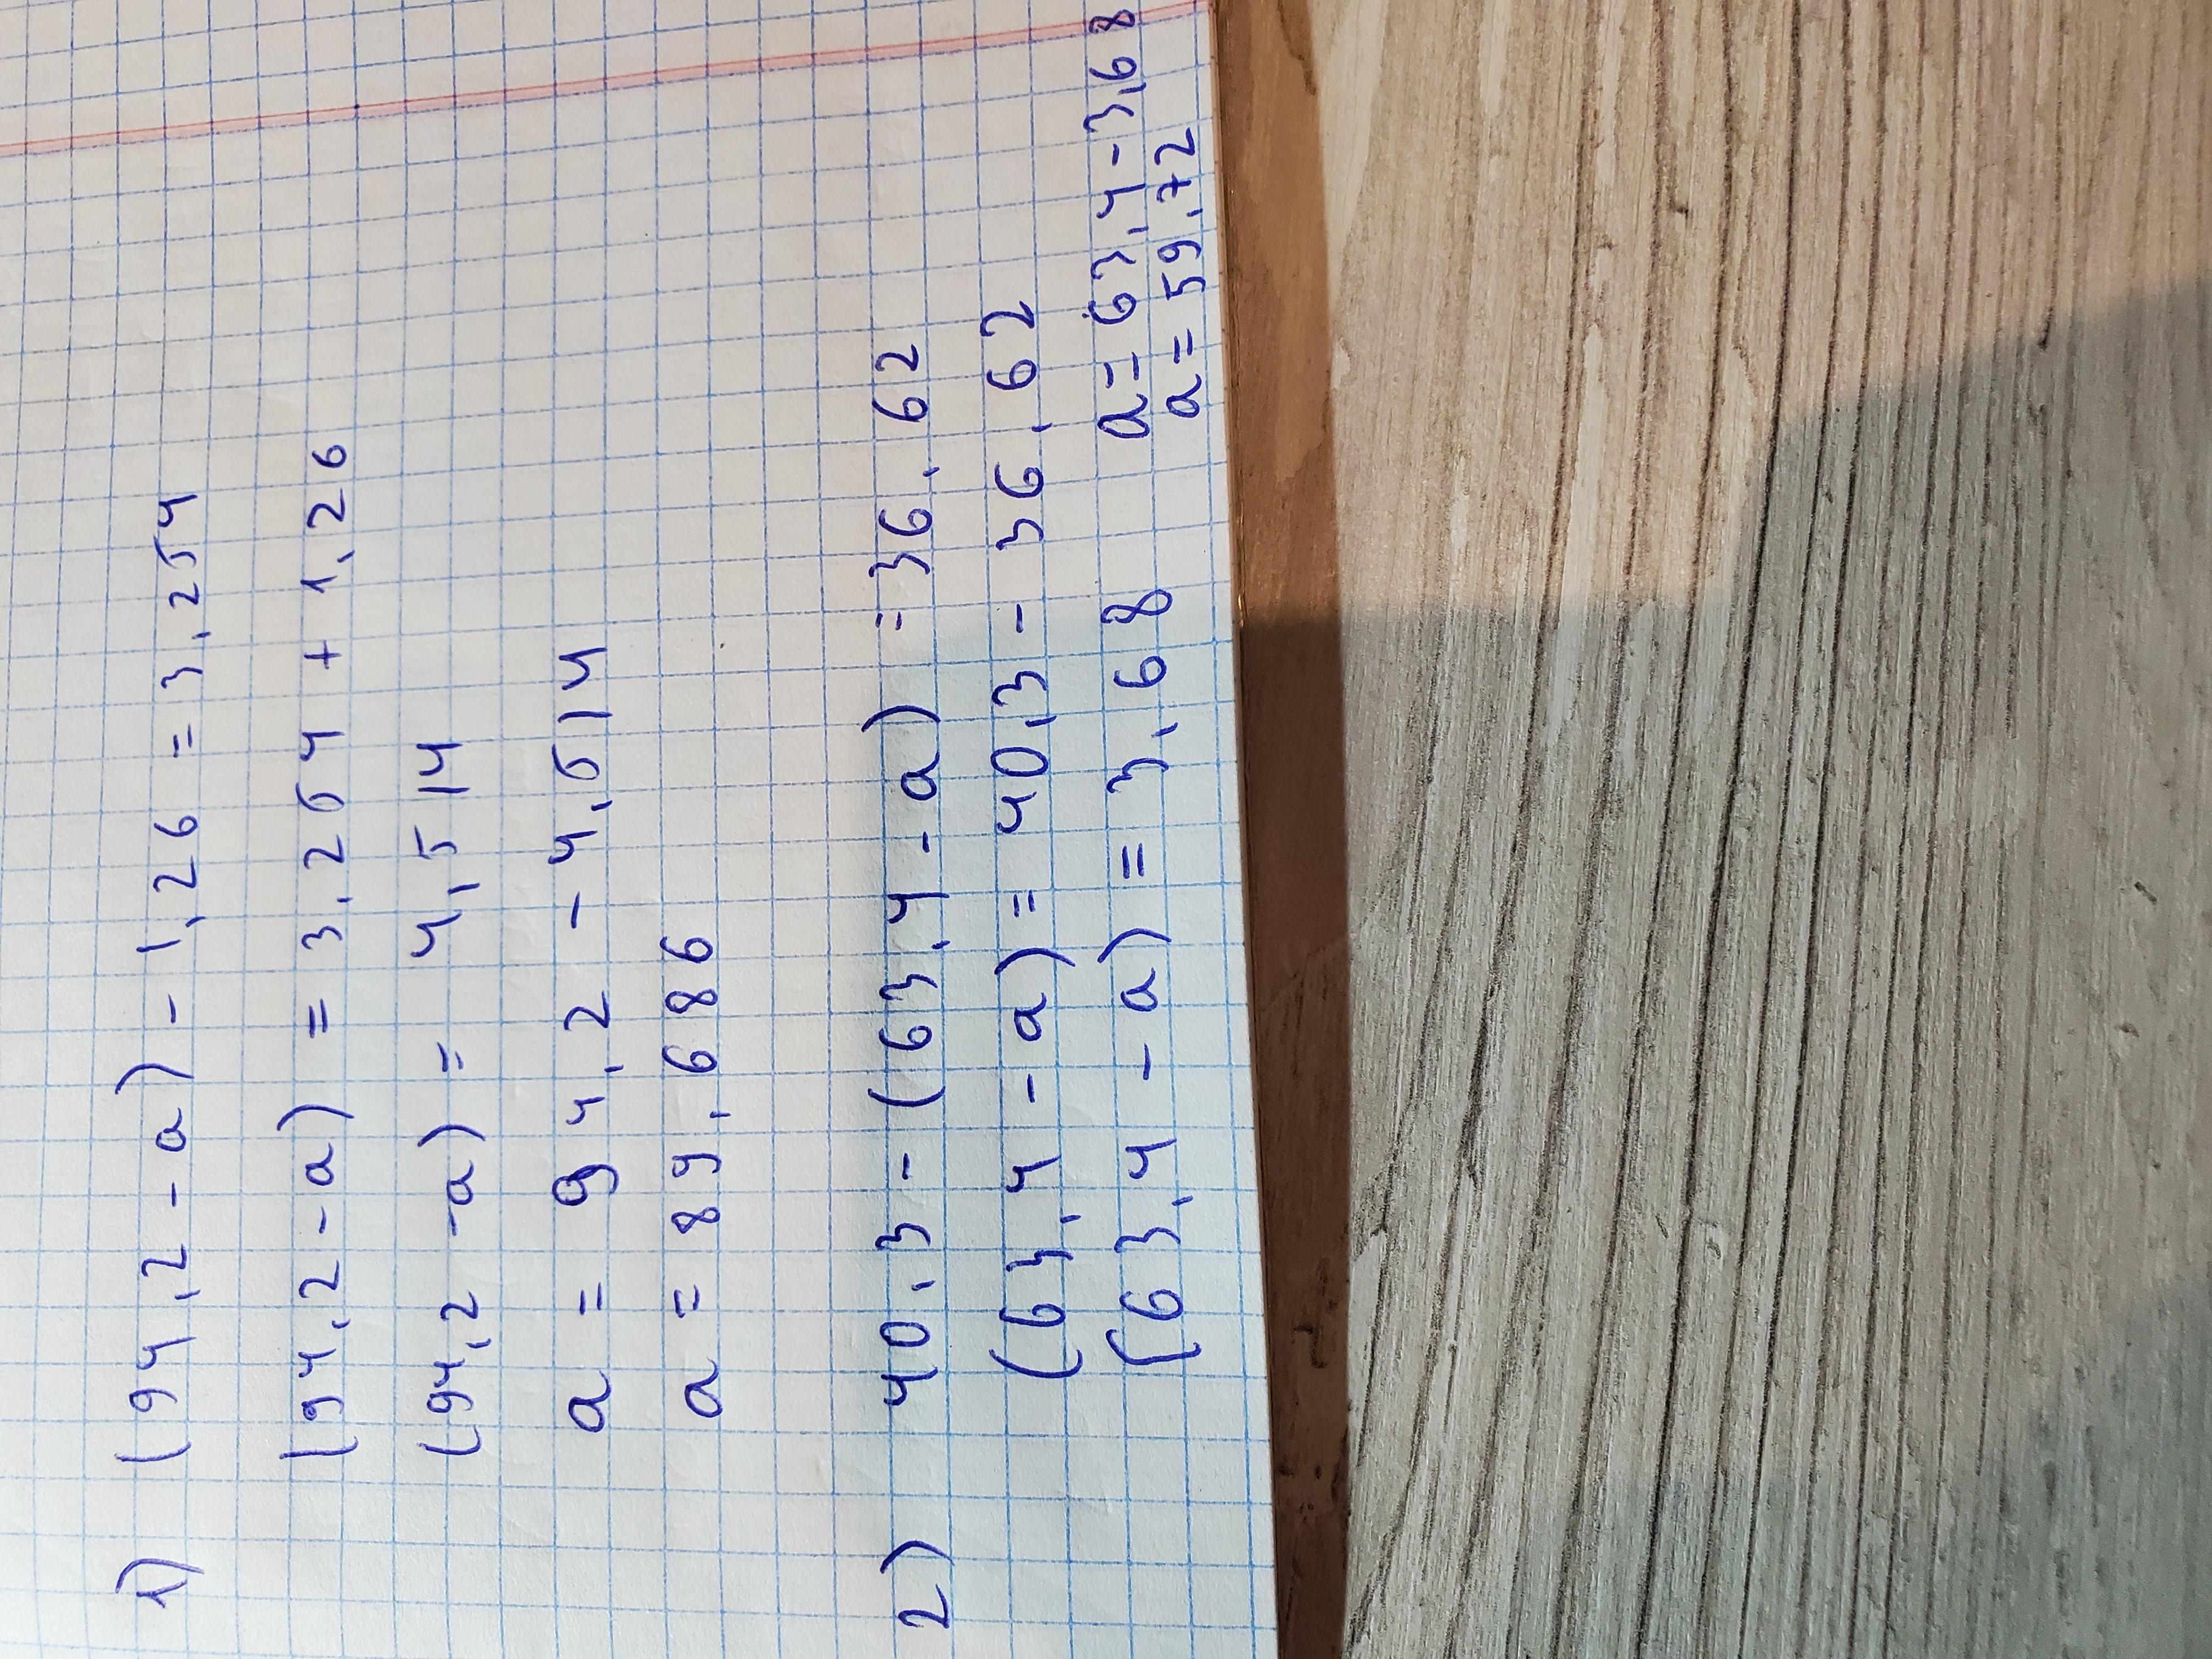 1) (94,2 - a) - 1,26 = 3,254
(94,2 - a) = 3,254 + 1,26
(94,2 - a) = 4,514
a = 94,2 - 4,514
a = 89,686
2) 40,3 - (63,4 - a) = 36,62
(63,4 - a) = 40,3 - 36,62
(63,4 - a) = 3,68
a = 63,4 - 3,68
a = 59,72